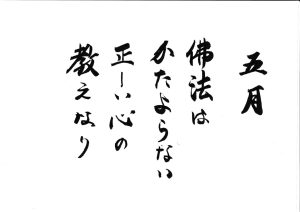 五月
佛法は
かたよらない
正しい心の
教えなり